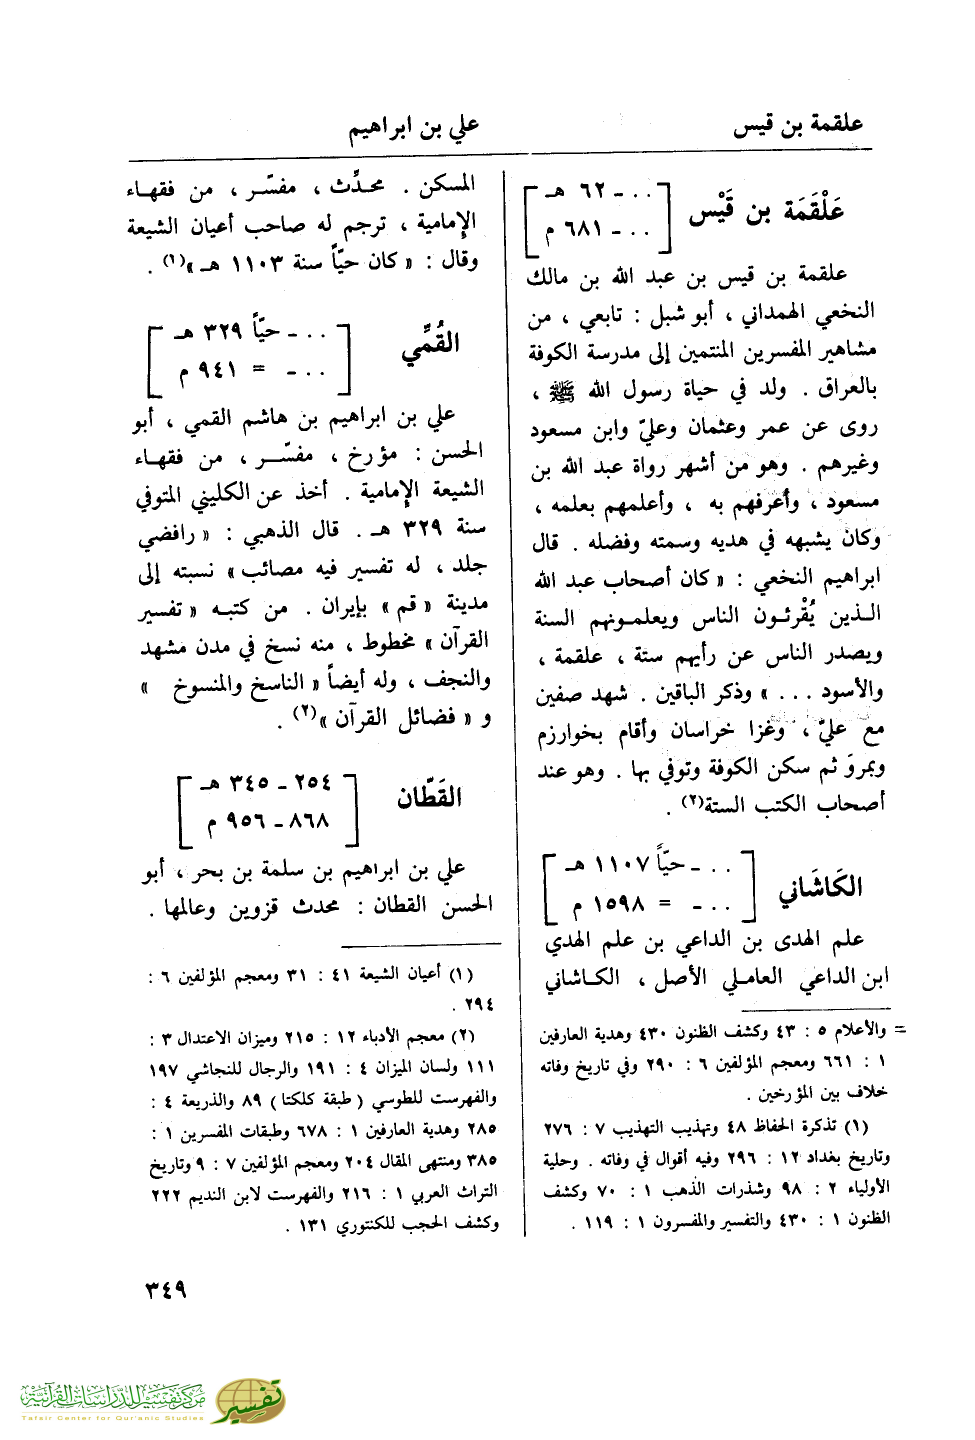 علقمة بن قيس
علي بن ابراهيم
عَلْقَمَة بن قَيْس
٠٠٠ - ٦٢ هـ
٠٠٠ - ٦٨١ م
علقمة بن قيس بن عبد الله بن مالك
النخعي الهمداني ، أبو شبل : تابعي ، من
مشاهير المفسرين المنتمين إلى مدرسة الكوفة
بالعراق . ولد في حياة رسول الله ﷺ ،
روى عن عمر وعثمان وعليّ وابن مسعود
وغيرهم . وهو من أشهر رواة عبد الله بن
مسعود ، وأعرفهم به ، وأعلمهم بعلمه ،
وكان يشبهه في هديه وسمته وفضله . قال
ابراهيم النخعي : « كان أصحاب عبد الله
الذين يُقْرئون الناس ويعلمونهم السنة
ويصدر الناس عن رأيهم ستة ، علقمة ،
والأسود ... » وذكر الباقين . شهد صفين
مع عليّ ، وغزا خراسان وأقام بخوارزم
وبمروَ ثم سكن الكوفة وتوفي بها . وهو عند
أصحاب الكتب الستة(٢) .
الكَاشَاني
٠٠٠ - حيّاً ١١٠٧ هـ
٠٠٠ - = ١٥٩٨ م
علم الهدى بن الداعي بن علم الهدي
ابن الداعي العاملي الأصل ، الكاشاني
= والأعلام ٥ : ٤٣ وكشف الظنون ٤٣٠ وهدية العارفين
١ : ٦٦١ ومعجم المؤلفين ٦ : ٢٩٠ وفي تاريخ وفاته
خلاف بين المؤرخين .
(١) تذكرة الحفاظ ٤٨ وتهذيب التهذيب ٧ : ٢٧٦
وتاريخ بغداد ١٢ : ٢٩٦ وفيه أقوال في وفاته . وحلية
الأولياء ٢ : ٩٨ وشذرات الذهب ١ : ٧٠ وكشف
الظنون ١ : ٤٣٠ والتفسير والمفسرون ١ : ١١٩ .
المسكن . محدِّث ، مفسّر ، من فقهاء
الإمامية ، ترجم له صاحب أعيان الشيعة
وقال : « كان حيّاً سنة ١١٠٣ هـ »(١) .
القُمِّي
٠٠٠ - حيّاً ٣٢٩ هـ
٠٠٠ - = ٩٤١ م
علي بن ابراهيم بن هاشم القمي ، أبو
الحسن : مؤرخ ، مفسّر ، من فقهاء
الشيعة الإمامية . أخذ عن الكليني المتوفي
سنة ٣٢٩ هـ . قال الذهبي : « رافضي
جلد ، له تفسير فيه مصائب » نسبته إلى
مدينة « قم » بإيران . من كتبه « تفسير
القرآن » مخطوط ، منه نسخ في مدن مشهد
والنجف ، وله أيضاً « الناسخ والمنسوخ »
و « فضائل القرآن »(٢) .
القَطّان
٢٥٤ - ٣٤٥ هـ
٨٦٨ - ٩٥٦ م
علي بن ابراهيم بن سلمة بن بحر ، أبو
الحسن القطان : محدث قزوين وعالمها .
(١) أعيان الشيعة ٤١ : ٣١ ومعجم المؤلفين ٦ :
٢٩٤ .
(٢) معجم الأدباء ١٢ : ٢١٥ وميزان الاعتدال ٣ :
١١١ ولسان الميزان ٤ : ١٩١ والرجال للنجاشي ١٩٧
والفهرست للطوسي ( طبقة كلكتا ) ٨٩ والذريعة ٤ :
٢٨٥ وهدية العارفين ١ : ٦٧٨ وطبقات المفسرين ١ :
٣٨٥ ومنتهى المقال ٢٠٤ ومعجم المؤلفين ٧ : ٩ وتاريخ
التراث العربي ١ : ٢١٦ والفهرست لابن النديم ٢٢٢
وكشف الحجب للكنتوري ١٣١ .
٣٤٩
مركز تفسير للدراسات القرآنية
Tafsir Center for Qur'anic Studies
تفسير